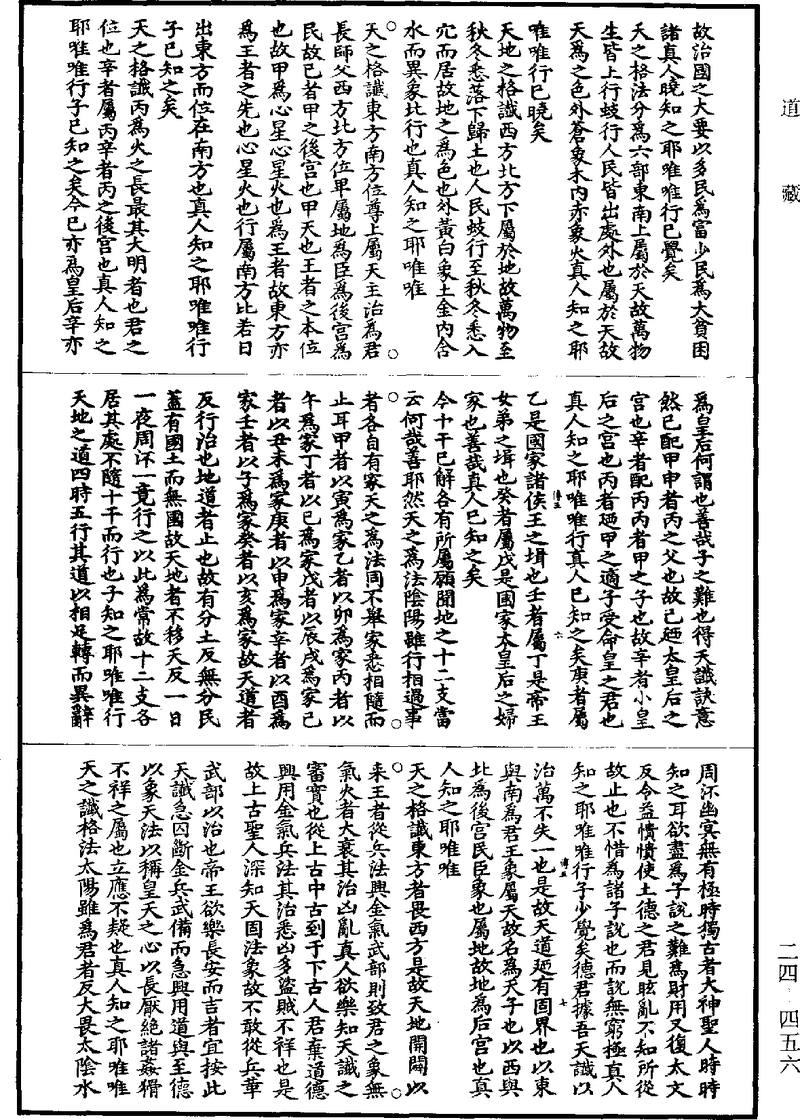 道藏
故治國之大要以多民為富少民為大貧困
諸真人曉知之耶唯唯行已覺矣
天之格法分為六部東南上屬於天故萬物
生皆上行蚑行人民皆出處外也屬於天故
天為之色外蒼象木內赤象火真人知之耶
唯唯行已曉矣
天地之格讖西方北方下屬於地故萬物至
秋冬悉落下歸土也人民蚑行至秋冬悉入
穴而居故地之為色也外黃白象土金內含
水而異象比行也真人知之耶唯唯
○天之格讖東方南方位尊上屬天主治為君○
長師父西方北方位卑屬地為臣為後宮為
民故已者甲之後宮也甲天也王者之本位
也故甲為心星心星火也為王者故東方亦
為王者之先也心星火也行屬南方比若日
出東方而位在南方也真人知之耶唯唯行
子已知之矣
天之格讖丙為火之長最其大明者也君之
位也辛者屬丙辛者丙之後宮也真人知之
耶唯唯行子已知之矣今已亦為皇后辛亦
為皇后何謂也善哉子之難也得天讖訣意
然已配甲甲者丙之父也故已迺太皇后之
宮也辛者配丙丙者甲之子也故辛者小皇
后之宮也丙者迺甲之適子受命皇之君也
真人知之耶唯唯行真人已知之矣庚者屬
乙是國家諸侯王之壻也壬者屬丁是帝王
女弟之壻也癸者屬戊是國家太皇后之婦
家也善哉真人已知之矣
今十干已解各有所屬願聞地之十二支當
云何哉善耶然天之為法陰陽雖行相過事
○者各自有家天之為法同不舉家悉相隨而○
止耳甲者以寅為家乙者以卯為家丙者以
午為家丁者以巳為家戊者以辰戌為家己
者以丑未為家庚者以申為家辛者以酉為
家壬者以子為家癸者以亥為家故天道者
反行治也地道者止也故有分土反無分民
蓋有國土而無國故天地者不移天反一日
一夜周㳅一竟行之以此為常故十二支各
居其處不隨十干而行也子知之耶唯唯行
天地之道四時五行其道以相足轉而異辭
周㳅幽冥無有極時獨古者大神聖人時時
知之耳欲盡為子說之難為財用又復太文
反令益憒憒使土德之君見眩亂不知所從
故止也不惜為諸子說也而說無窮極真人
知之耶唯唯行子少覺矣德君據吾天讖以
治萬不失一也是故天道迺有固界也以東
與南為君王象屬天故名為天子也以西與
北為後宮民臣象也屬地故地為后宮也真
人知之耶唯唯
天之格讖東方者畏西方是故天地開闢以
○来王者從兵法興金氣武部則致君之象無○
氣火者大衰其治凶亂真人欲樂知天讖之
審實也從上古中古到于下古人君棄道德
興用金氣兵法其治悉凶多盜賊不祥也是
故上古聖人深知天固法象故不敢從兵革
武部以治也帝王欲樂長安而吉者宜按此
天讖急囚斷金兵武備而急興用道與至德
以象天法以稱皇天之心以長厭絕諸姦猾
不祥之屬也立應不疑也真人知之耶唯唯
天之讖格法太陽雖為君者反大畏太陰水
二四·四五六